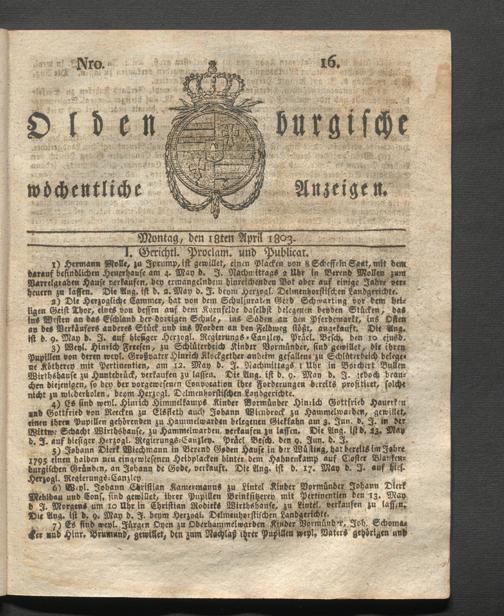 Nro. 16.
Oldenburgische
wöchentliche Anzeigen.
Montag, den 18ten April 1803.
I. Gerichtl. Proclam. und Publicat.
1) Hermann Molle, zu Iprump, ist gewillet, einen Placken von 8 Scheffeln Saat, mit dem
darauf befindlichen Heuerhause am 4. May d. J. Nachmittags 2 Uhr in Berend Mollen zum
Varrelgraben Hause verkaufen, bey ermangelndem hinreichenden Bot aber auf einige Jahr ver-
heuern zu lassen. Die Ang. ist d. 2. May d. J. beym Herzogl. Delmenhorstischen Landgerichte.
2) Die Herzogliche Cammer, hat von dem Schuljuraten Gerd Schwarting vor dem hei-
ligen Geist Thor, eines von dessen auf dem Kornfelde daselbst belegenen beyden Stücken, das
ins Westen an das Eschland der dortigen Schule, ins Süden an den Pferdemarkt, ins Osten
an des Verkäufers anderes Stück und ins Norden an den Feldweg stößt, angekauft. Die Ang.
ist d. 9. May d. J. auf hiesiger Herzogl. Regierungs-Canzley. Präcl. Besch. den 10 ejusd.
3) Weyl. Hinrich Freesen, zu Schlüterdeich Kinder Vormünder, sind gewillet, die ihren
Pupillen von deren weyl. Großvater Hinrich Klockgether anheim gefallene zu Schlüterdeich belege-
ne Kötherey mit Pertinentien, am 12. May d. J. Nachmittags 1 Uhr in Borchert Bullen
Wirthshause zu Huntebrück, verkaufen zu lassen. Die Ang. ist d. 9. May d. J. jedoch brau-
chen diejenigen, so bey der vorgewesenen Convocation ihre Forderungen bereits profitiret, solche
nicht zu wiederholen, beym Herzogl. Delmenhorstischen Landgerichte.
4) Es sind weyl. Hinrich Himmelskamps Kinder Vormünder Hinrich Gottfried Hauerken
und Gottfried von Reecken zu Elsfleth auch Johann Wienbrock zu Hammelwarden, gewillet,
einen ihren Pupillen gehörenden zu Hammelwarden belegenen Siekkamp am 3. Jun. d. J. in der
Wittwe Schacht Wirthshause, zu Hammelwarden, verkaufen zu lassen. Die Ang. ist d. 23. May
d. J. auf hiesiger Herzogl. Regierungs-Canzley. Präcl. Besch. den 9. Jun. d. J.
5) Johann Dierk Wiechmann in Berend Goden Hause in der Wüsting, hat bereits im Jahre
1795 einen halben neu eingewiesenen Heidplacken hinter dem Hahnenkamp auf Closter Blanken-
burgischen Gründen, an Johann de Gode, verkauft. Die Ang. ist d. 17. May d. J. auf hies.
Herzogl. Regierungs-Canzley.
6) Weyl. Johann Christian Kamermanns zu Lintel Kinder Vormünder Johann Dierk
und Cons. sind gewillet, ihrer Pupillen Brinksitzerey mit Pertinentien den 13. May
d. J. Morgens um 10 Uhr in Christian Rodieks Wirthshause, zu Lintel, verkaufen zu lassen.
Die Ang. ist d. 9. May d. J. beym Herzogl. Delmenhorstischen Landgerichte.
7) Es sind weyl. Jürgen Oyen zu Oberhammelwarden Kinder Vormünder, Joh. Schoma-
ker und Hinr. Brummund, gewillet, den zum Nachlaß ihrer Pupillen weyl. Vaters gehörigen und